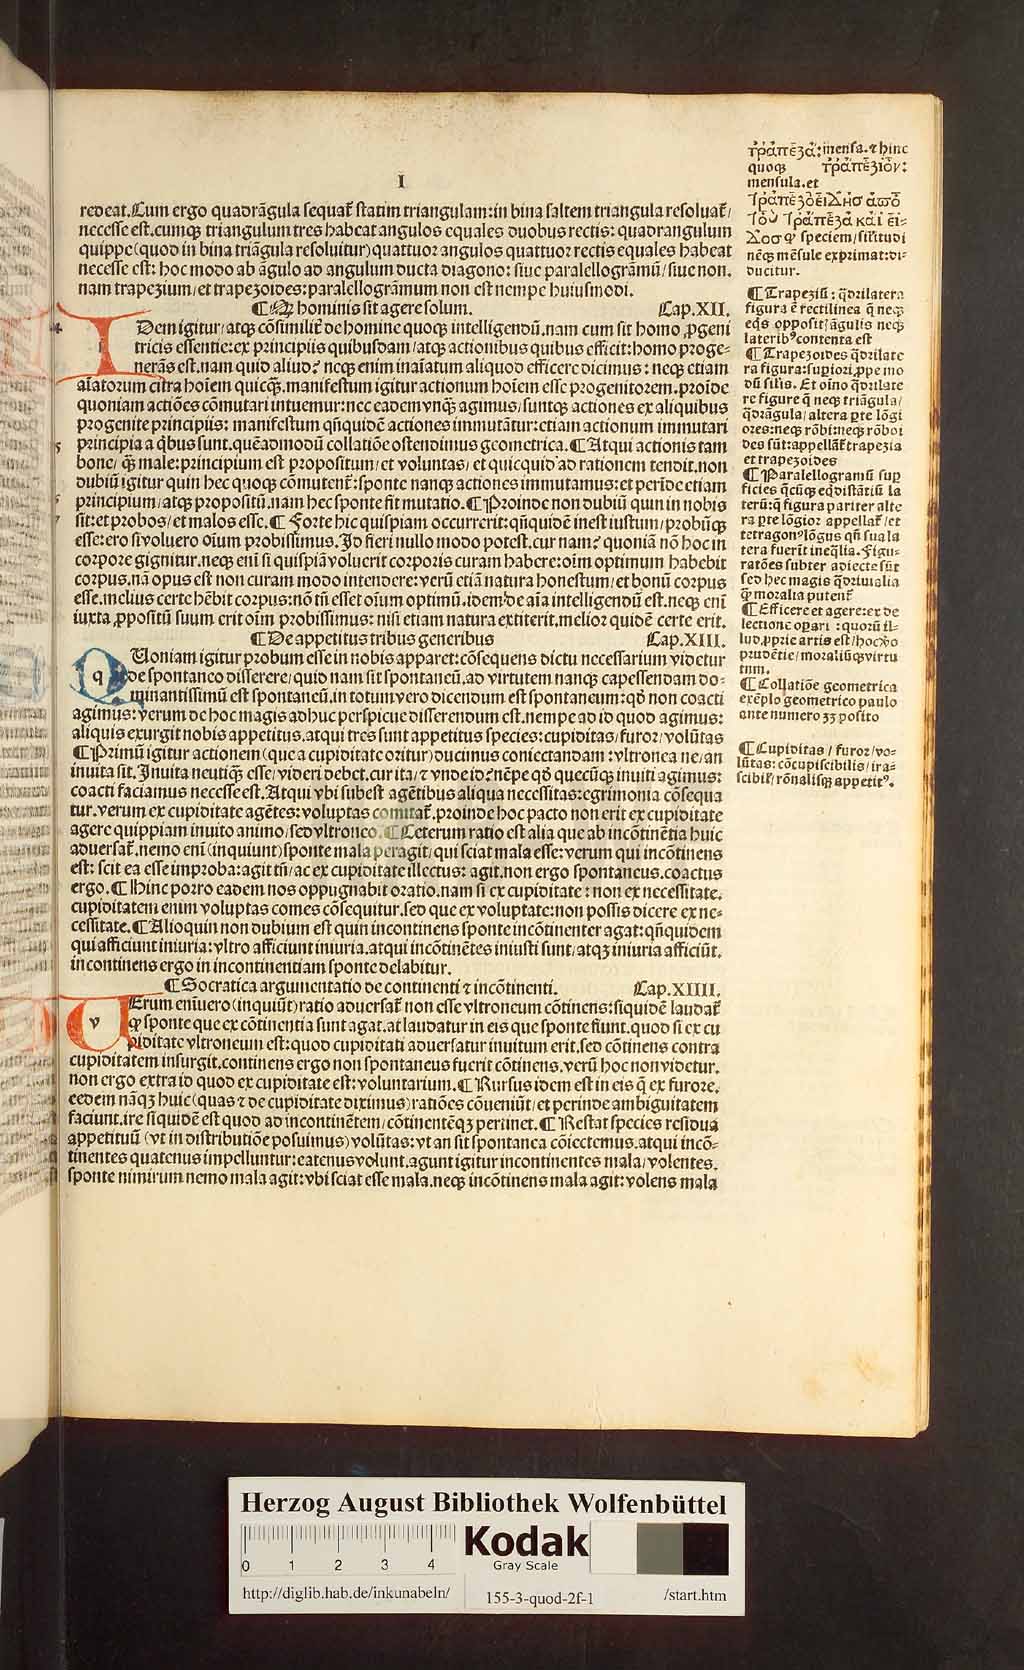 I
redeat. Cum ergo quadrãgula sequat̃ statim triangulam: in bina saltem triangula resoluat̃/
necesse est. cumqꝫ triangulum tres habeat angulos equales duobus rectis: quadrangulum
quippe (quod in bina triãgula resoluitur) quattuor angulos quattuor rectis equales habeat
necesse est: hoc modo ab ãgulo ad angulum ducta diagono: siue paralellogrãmũ/ siue non.
nam trapezium/ et trapezoides: paralellogrãmum non est nempe huiusmodi.
¶ Qꝫ hominis sit agere solum. Cap. XII.
IDem igitur/ atqꝫ cõsimilit̃ de homine quoqꝫ intelligendũ. nam cum sit homo ꝓgeni
tricis essentie: ex principiis quibusdam/ atqꝫ actionibus quibus efficit: homo proge-
nerãs est. nam quid aliud? neqꝫ enim inaĩatum aliquod efficere dicimus: neqꝫ etiam
aĩatorum citra hoĩem quicqꝫ. manifestum igitur actionum hoĩem esse progenitorem. proide
quoniam actiões cõmutari intuemur: nec eadem vnqꝫ agimus/ suntqꝫ actiones ex aliquibus
progenite principiis: manifestum qñquidẽ actiones immutãtur: etiam actionum immutari
principia a q̃bus sunt. quẽadmodũ collatiõe ostendimus geometrica. ¶ Atqui actionis tam
bone/ qꝫ male: principium est propositum/ et voluntas/ et quicquid ad rationem tendit. non
dubiũ igitur quin hec quoqꝫ cõmutent̃: sponte nanqꝫ actiones immutamus: et perĩde etiam
principium/ atqꝫ propositũ. nam hec sponte fit mutatio. ¶ Proinde non dubiũ quin in nobis
sit: et probos/ et malos esse. ¶ Forte hic quispiam occurrerit: qñquidẽ inest iustum/ probũqꝫ
esse: ero si voluero oĩum probissimus. Id fieri nullo modo potest. cur nam? quoniã nõ hoc in
corpore gignitur. neqꝫ enĩ si quispiã voluerit corporis curam habere: oĩm optimum habebit
corpus. nã opus est non curam modo intendere: verũ etiã natura honestum/ et bonũ corpus
esse. melius certe hẽbit corpus: nõ tñ esset oĩum optimũ. idem de aĩa intelligendũ est. neqꝫ enĩ
iuxta ꝓpositũ suum erit oĩum probissimus: nisi etiam natura extiterit. melior quidẽ certe erit.
¶ De appetitus tribus generibus Cap. XIII.
QUoniam igitur probum esse in nobis apparet: cõsequens dictu necessarium videtur
de spontaneo disserere/ quid nam sit spontaneũ. ad virtutem nanqꝫ capessendam do-
minantissimũ est spontaneũ. in totum vero dicendum est spontaneum: qð non coacti
agimus: verum de hoc magis adhuc perspicue disserendum est. nempe ad id quod agimus:
aliquis exurgit nobis appetitus. atqui tres sunt appetitus species: cupiditas/ furor/ volũtas
¶ Primũ igitur actionem (que a cupiditate oritur) ducimus coniectandam: vltronea ne/ an
inuita sit. Inuita neutiqꝫ esse/ videri debet. cur ita/ ⁊ vnde id? nẽpe qð quecũqꝫ inuiti agimus:
coacti faciamus necesse est. Atqui vbi subest agẽtibus aliqua necessitas: egrimonia cõsequa
tur. verum ex cupiditate agẽtes: voluptas comitat̃. proinde hoc pacto non erit ex cupiditate
agere quippiam inuito animo/ sed vltroneo. ¶ Ceterum ratio est alia que ab incõtinẽtia huic
aduersat̃. nemo enĩ (inquiunt) sponte mala peragit/ qui sciat mala esse: verum qui incõtinens
est: scit ea esse improba: agit tñ/ ac ex cupiditate illectus: agit. non ergo spontaneus. coactus
ergo. ¶ Hinc porro eadem nos oppugnabit oratio. nam si ex cupiditate: non ex necessitate.
cupiditatem enim voluptas comes cõsequitur. sed que ex voluptate: non possis dicere ex ne-
cessitate. ¶ Alioquin non dubium est quin incontinens sponte incõtinenter agat: qñquidem
qui afficiunt iniuria: vltro afficiunt iniuria. atqui incõtinẽtes iniusti sunt/ atqꝫ iniuria afficiũt.
incontinens ergo in incontinentiam sponte delabitur.
¶ Socratica argumentatio de continenti ⁊ incõtinenti. Cap. XIIII.
VErum enĩuero (inquiũt) ratio aduersat̃ non esse vltroneum cõtinens: siquidẽ laudat̃
qꝫ sponte que ex cõtinentia sunt agat. at laudatur in eis que sponte fiunt. quod si ex cu
piditate vltroneum est: quod cupiditati aduersatur inuitum erit. sed cõtinens contra
cupiditatem insurgit. continens ergo non spontaneus fuerit cõtinens. verũ hoc non videtur.
non ergo extra id quod ex cupiditate est: voluntarium. ¶ Rursus idem est in eis q̃ ex furore.
eedem nãqꝫ huic (quas ⁊ de cupiditate diximus) ratiões cõueniũt/ et perinde ambiguitatem
faciunt. ire siquidẽ est quod ad incontinẽtem/ cõtinentẽqꝫ pertinet. ¶ Restat species residua
appetituũ (vt in distributiõe posuimus) volũtas: vt an sit spontanea cõiectemus. atqui incõ-
tinentes quatenus impelluntur: eatenus volunt. agunt igitur incontinentes mala/ volentes.
sponte nimirum nemo mala agit: vbi sciat esse mala. neqꝫ incõtinens mala agit: volens mala
τράπεζα: mensa. ⁊ hinc
quoqꝫ τραπέζιον:
mensula. et
τραπεζοειδὴσ ἀπὸ
τοῦ τράπεζα καὶ εἶ-
δοσ qꝫ speciem/ silitudi
nẽqꝫ mẽsule exprimat: di-
ducitur.
¶ Trapeziũ: q̃drilatera
figura ẽ rectilinea q̃ neqꝫ
eq̃s opposit/ ãgulis neqꝫ
lateribꝰ contenta est
¶ Trapezoides q̃drilate
ra figura: supiori ꝓpe mo
dũ silis. Et oĩno q̃drilate
re figure q̃ neqꝫ triãgula/
q̃drãgula/ altera ꝑte lõgi
ores: neqꝫ rõbi: neqꝫ rõboi
des sũt: appellãt̃ trapezia
et trapezoides
¶ Paralellogramũ sup
ficies q̃cũqꝫ eq̃distãtiũ la
terũ: q̃ figura pariter alte
ra ꝑte lõgior appellat̃/ et
tetragonꝰ lõgus qñ sua la
tera fuerĩt ineq̃lia. Figu-
ratões subter adiecte sũt
sed hec magis q̃driuialia
qꝫ moralia putent̃
¶ Efficere et agere: ex de
lectione oꝑari: quorũ il-
lud ꝓprie artis est/ hoc ꝟo
prudẽtie/ moraliũqꝫ virtu
tum.
¶ Collatiõe geometrica
exẽplo geometrico paulo
ante numero 33 posito
¶ Cupiditas/ furor/ vo-
lũtas: cõcupiscibilis/ ira-
scibil/ rõnalisqꝫ appetitꝰ.
Herzog August Bibliothek Wolfenbüttel
0 1 2 3 4
Kodak
Gray Scale
http://diglib.hab.de/inkunabeln/
155-3-quod-2f-1
/start.htm